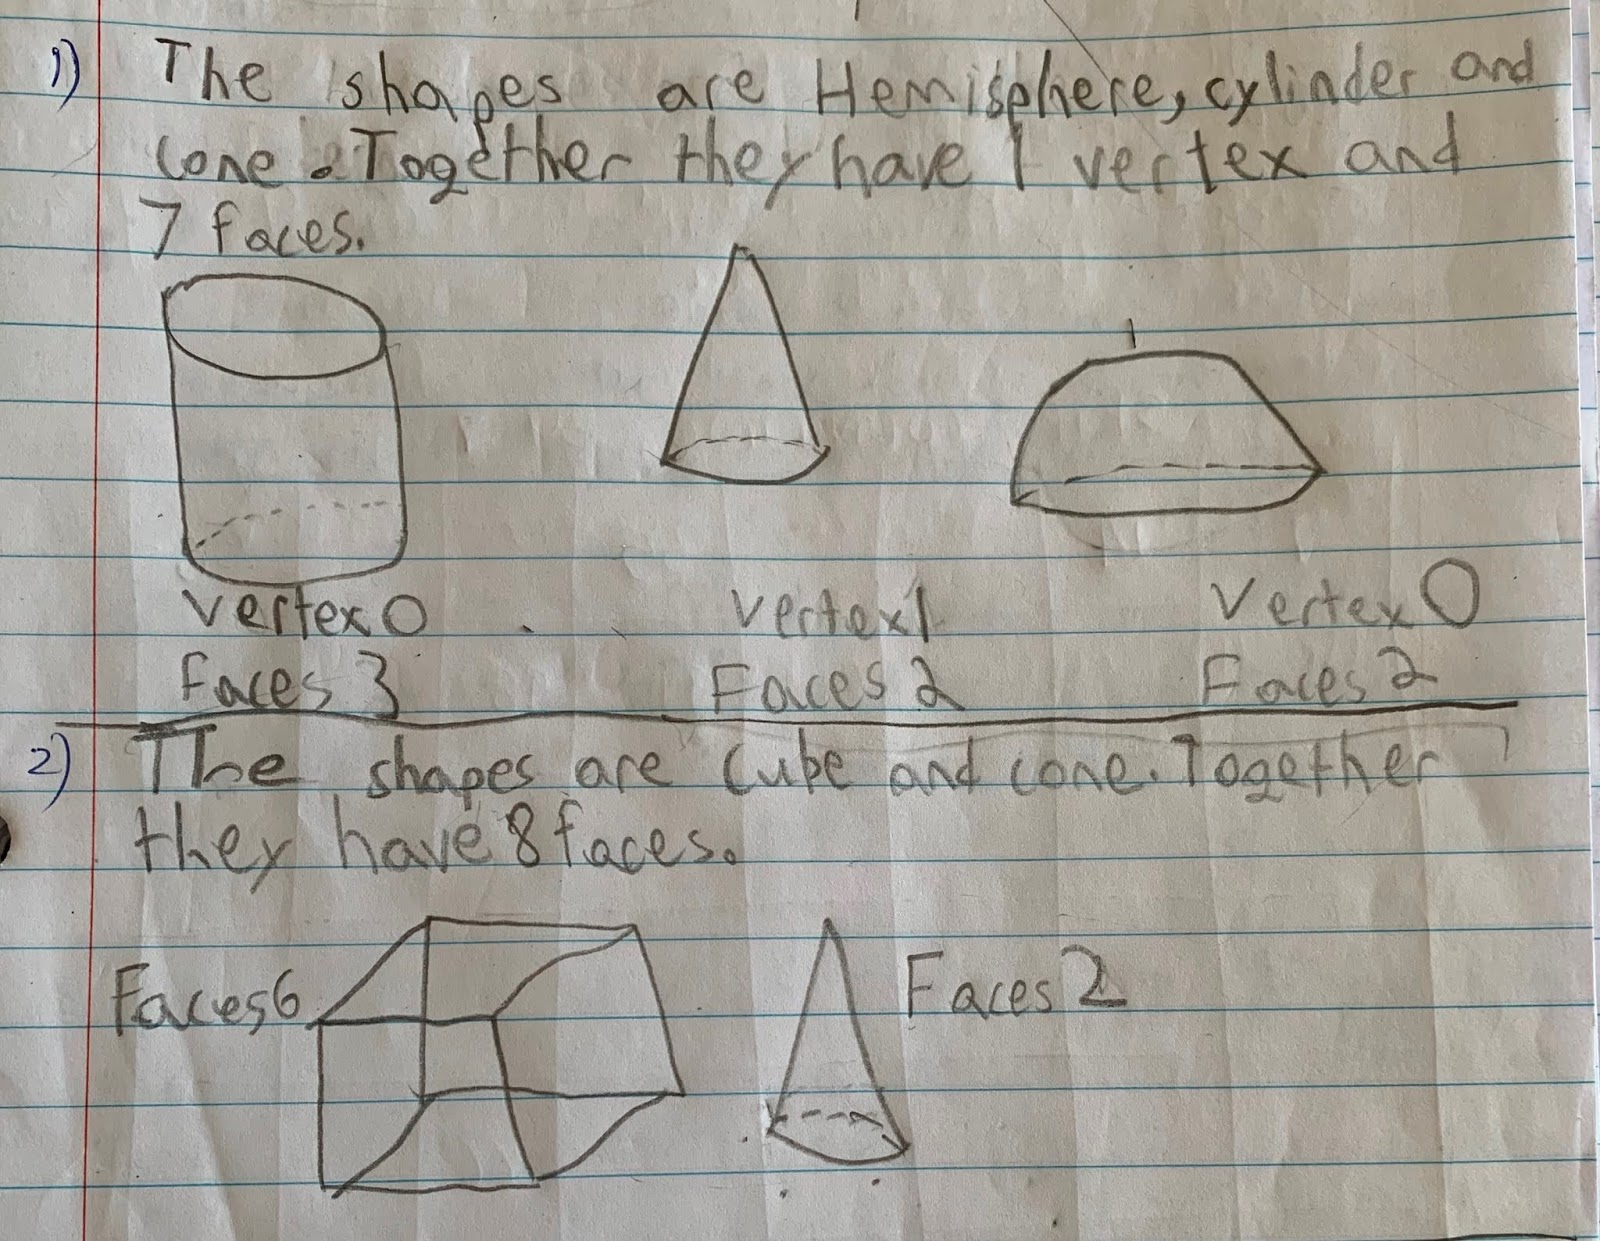 1) The shapes are Hemisphere, cylinder and
cone. Together they have 1 vertex and
7 faces.
Vertex 0 Vertex 1 Vertex 0
Faces 3 Faces 2 Faces 2
2) The shapes are cube and cone. Together
they have 8 faces.
Faces 6 Faces 2